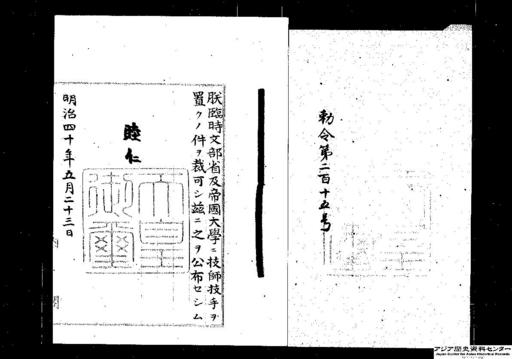 勅令第二百十五号
朕臨時文部省及帝國大學ニ技師技手ヲ
置クノ件ヲ裁可シ茲ニ之ヲ公布セシム
睦仁
天皇
御璽
明治四十年五月二十三日
アジア歴史資料センター
Japan Center for Asian Historical Records